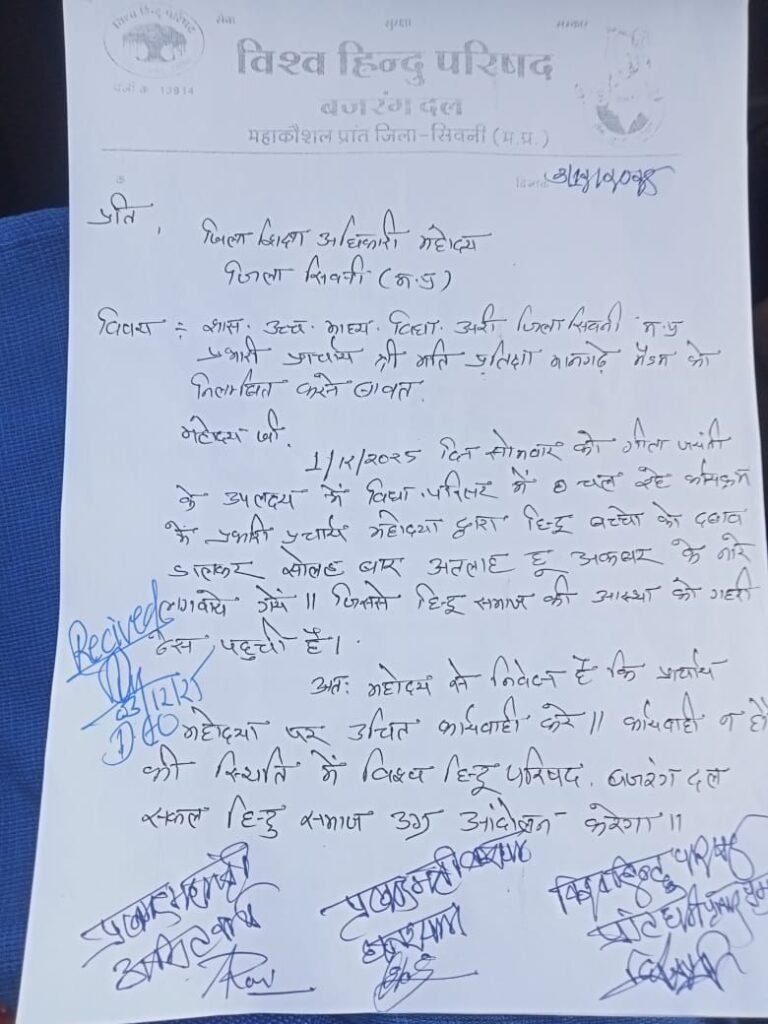 विश्व हिन्दू परिषद
सेवा सुरक्षा संस्कार
विश्व हिन्दु परिषद
पंजी क्र. 13914
बजरंग दल
महाकौशल प्रांत जिला-सिवनी (म.प्र.)
क्र
दिनांक
प्रति,
जिला शिक्षा अधिकारी महोदय
जिला सिवनी (म.प्र)
विषय :- शास. उच्च. माध्य. विद्या. अरी जिला सिवनी म.प्र
प्रभारी प्राचार्य श्री मति प्रतिक्षा मानगढ़े मैडम को
निलम्बित करने बावत.
महोदय जी.
1/12/2025 दिन सोमवार को गीता जयंती
के उपलक्ष्य में विद्या.परिसर में चल रहे कार्यक्रम
के प्रभारी प्रचार्य महोदया द्वारा हिन्दू बच्चो को दबाव
डालकर सोलह बार अल्लाह हू अकबर के नारे
लगवाये गये॥ जिससे हिन्दू समाज की आस्था को गहरी
ठेस पहुची है।
Recived
03/12/25
DEO
अतः महोदय से निवेदन है कि प्राचार्य
महोदया पर उचित कार्यवाही करे॥ कार्यवाही न होने
की स्थिति में विश्व हिन्दू परिषद. बजरंग दल
सकल हिन्दु समाज उग्र आंदोलन करेगा॥
विश्व हिन्दू परिषद
घनश्याम